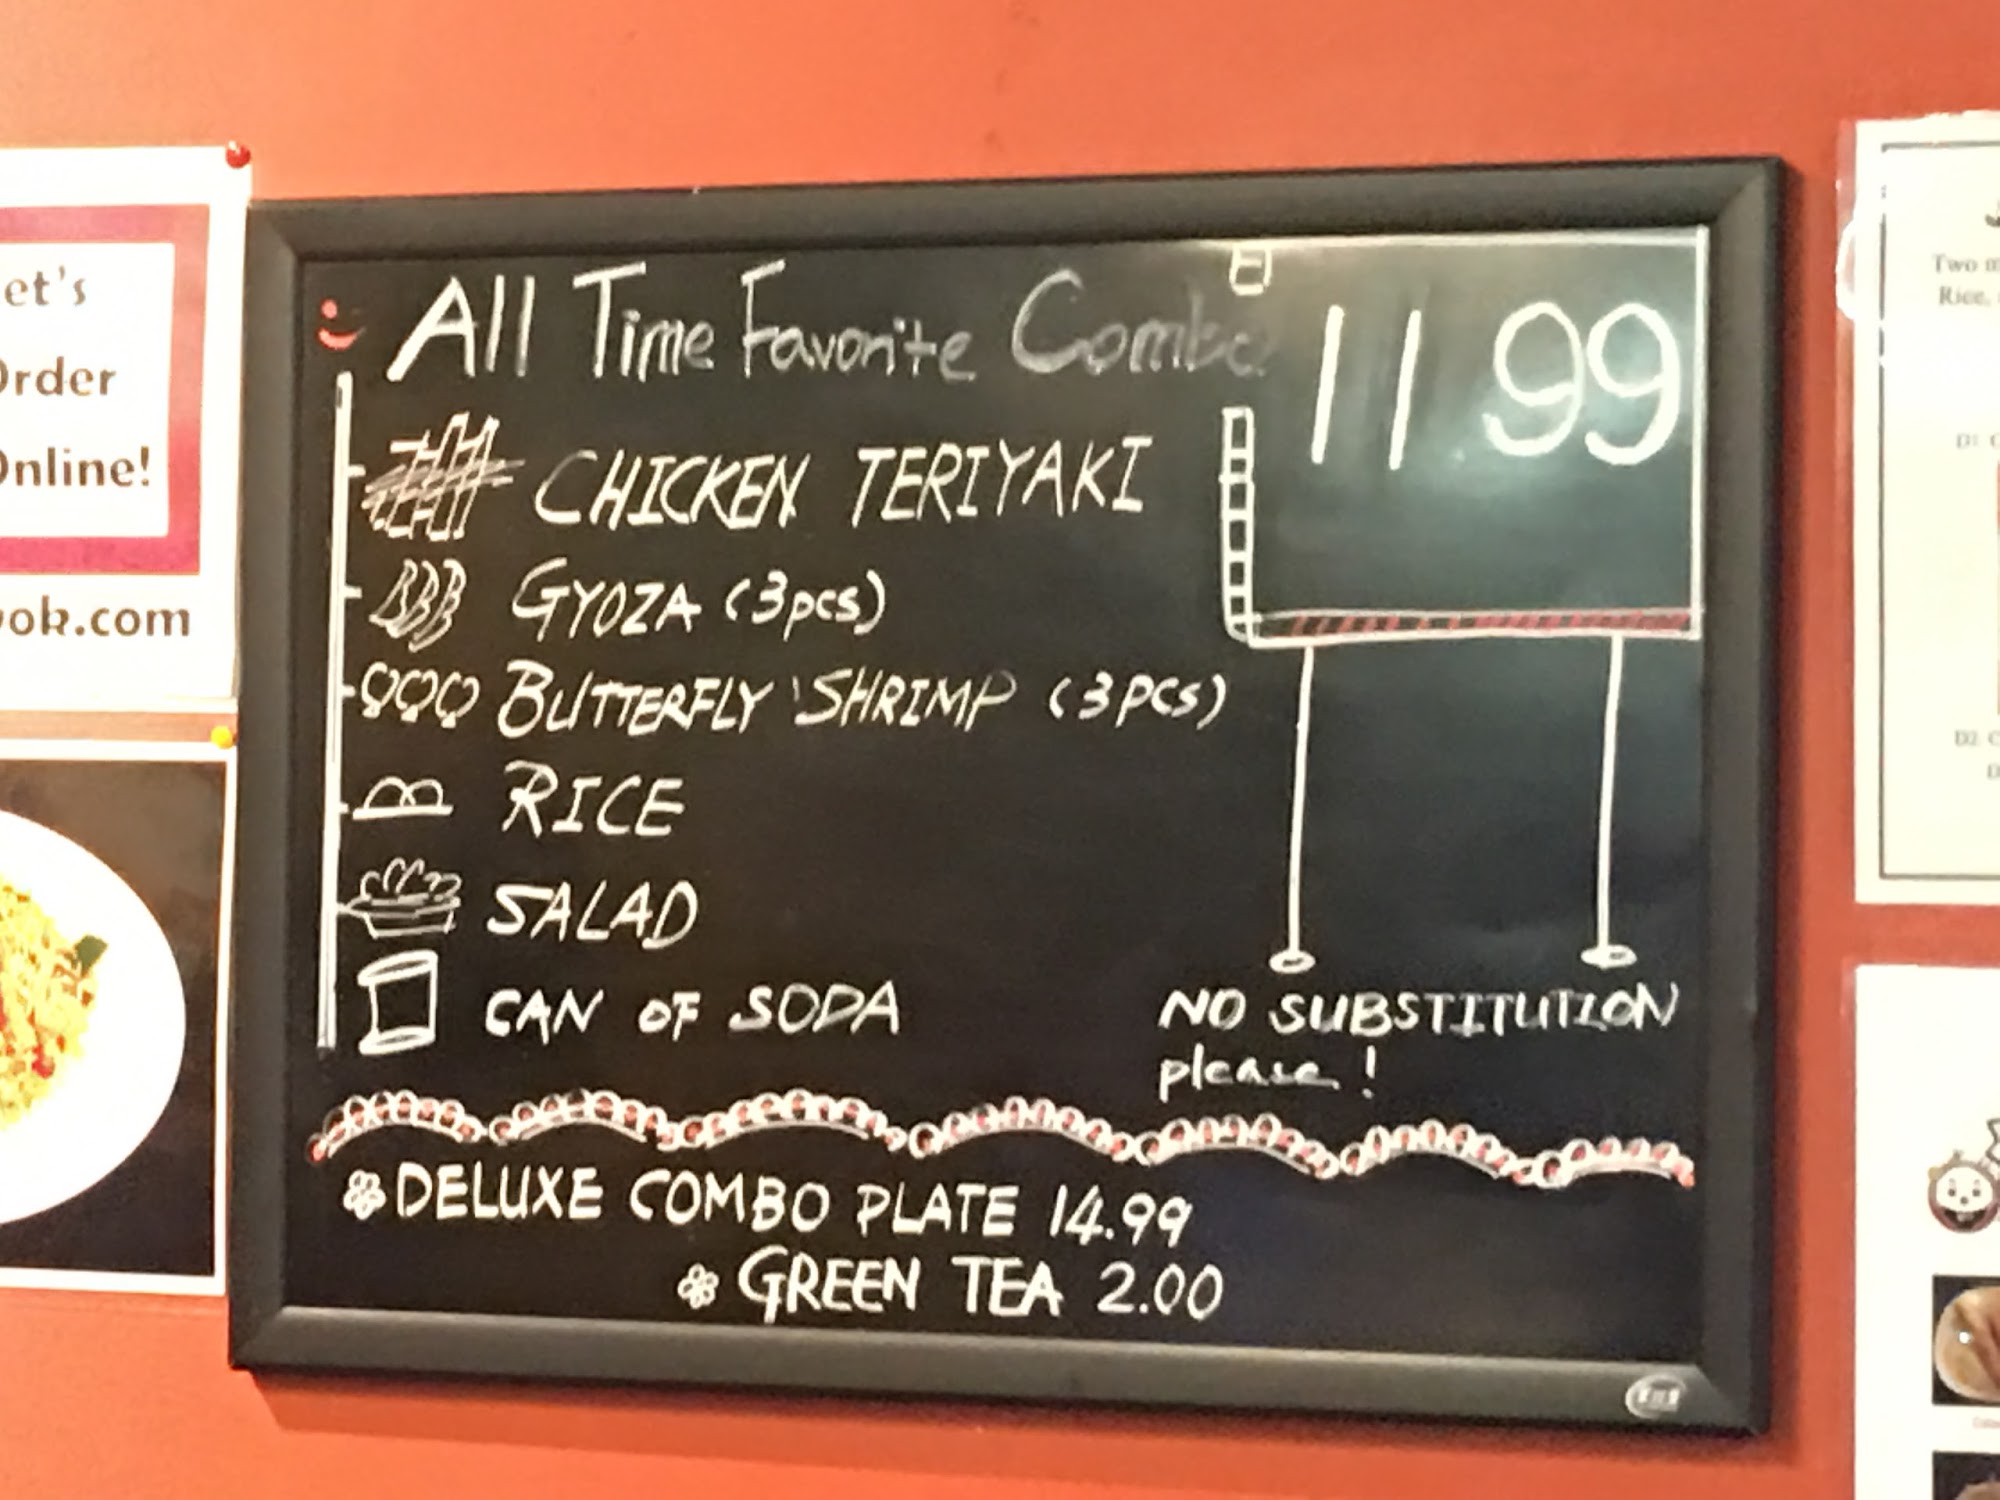 et's
Order
Online!
ok.com
All Time Favorite Combo
11 99
CHICKEN TERIYAKI
GYOZA (3pcs)
BUTTERFLY SHRIMP (3PCS)
RICE
SALAD
CAN OF SODA
NO SUBSTITUTION
please!
DELUXE COMBO PLATE 14.99
GREEN TEA 2.00
Two
Rice,
D1
D2